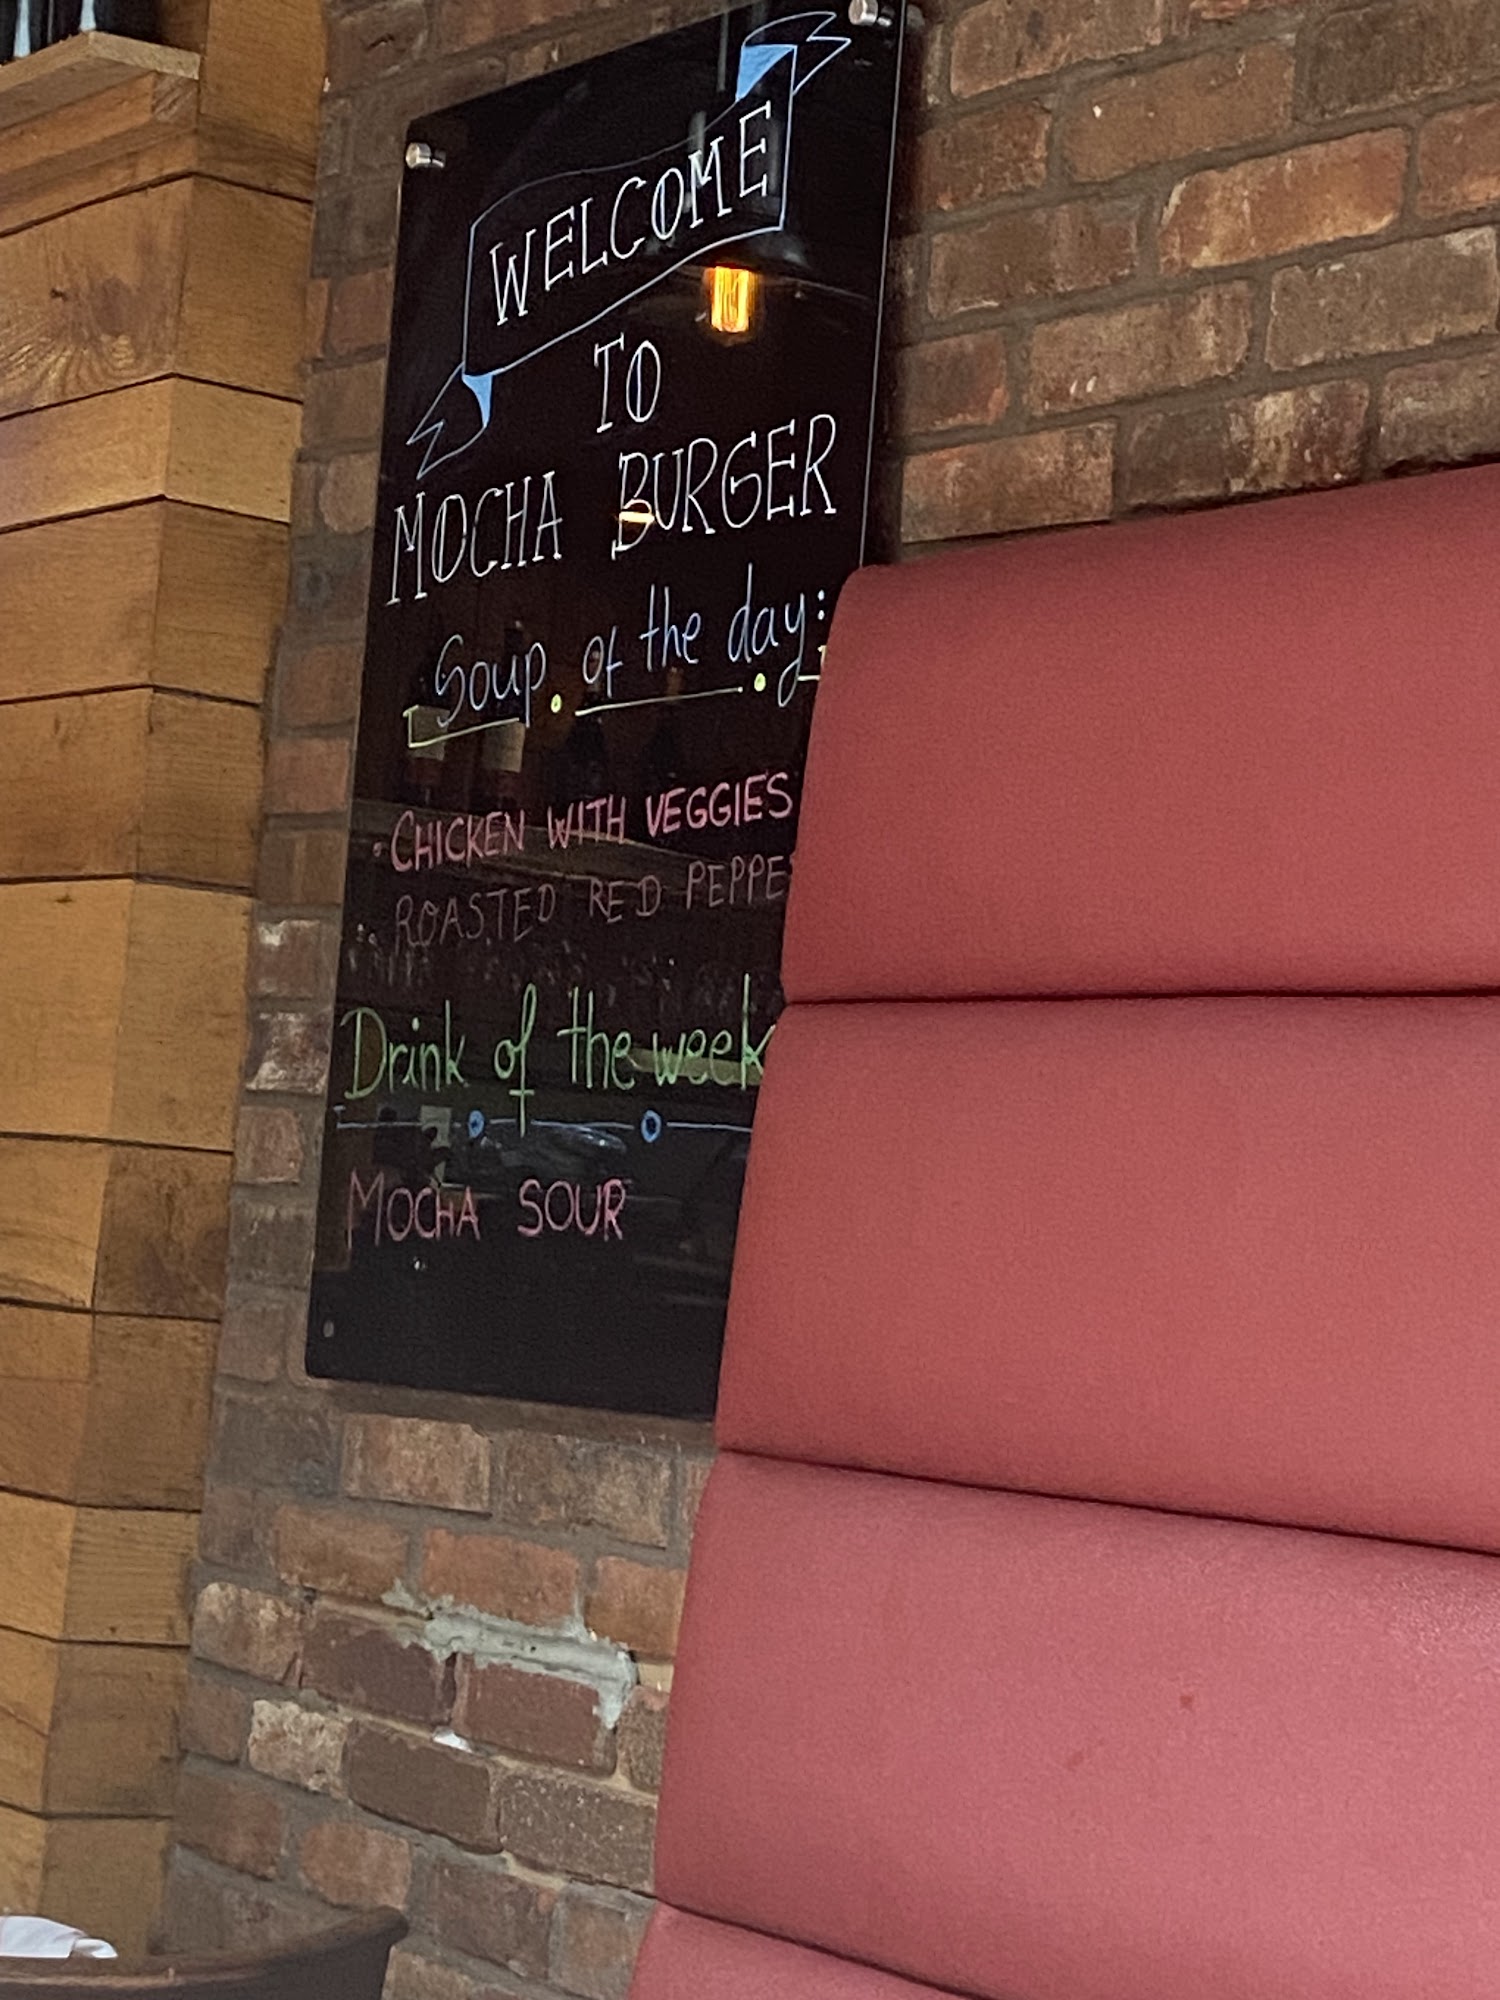 WELCOME
TO
MOCHA BURGER
Soup of the day:
• CHICKEN WITH VEGGIES
• ROASTED RED PEPPE
Drink of the week
MOCHA SOUR